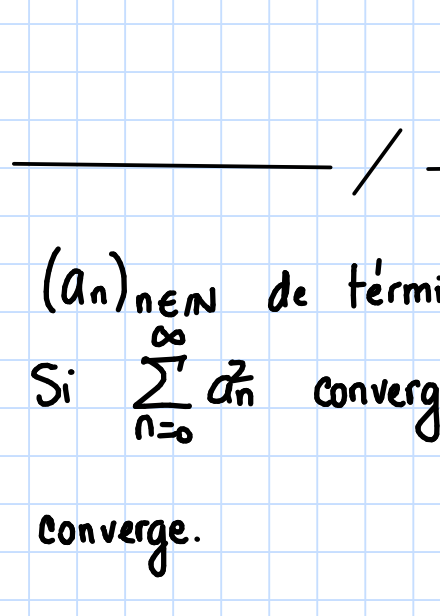 (aₙ)ₙ∈ℕ de térmi
Si ∑_{n=0}^{∞} aₙ² converg
converge.